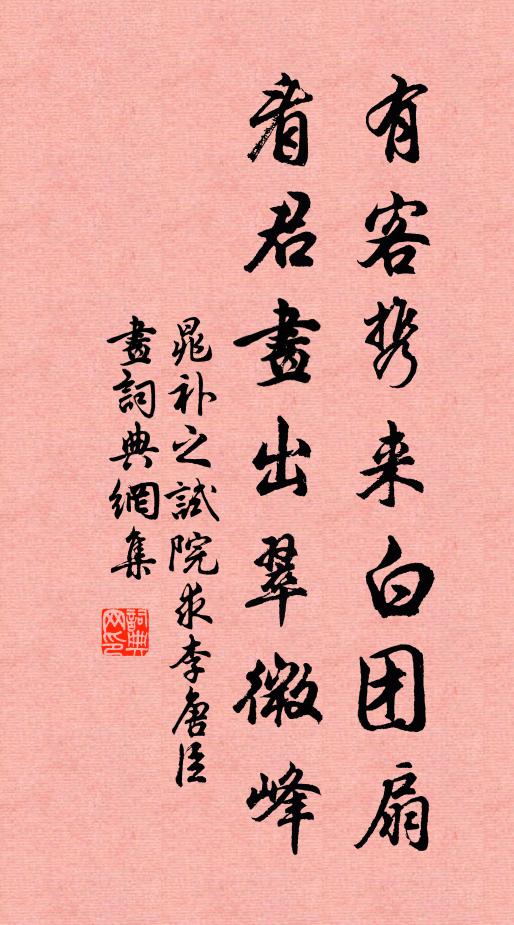 有客携来白团扇
看君畫出翠微峰
晁补之試院求李唐臣
畫詞典網集
詞典网印